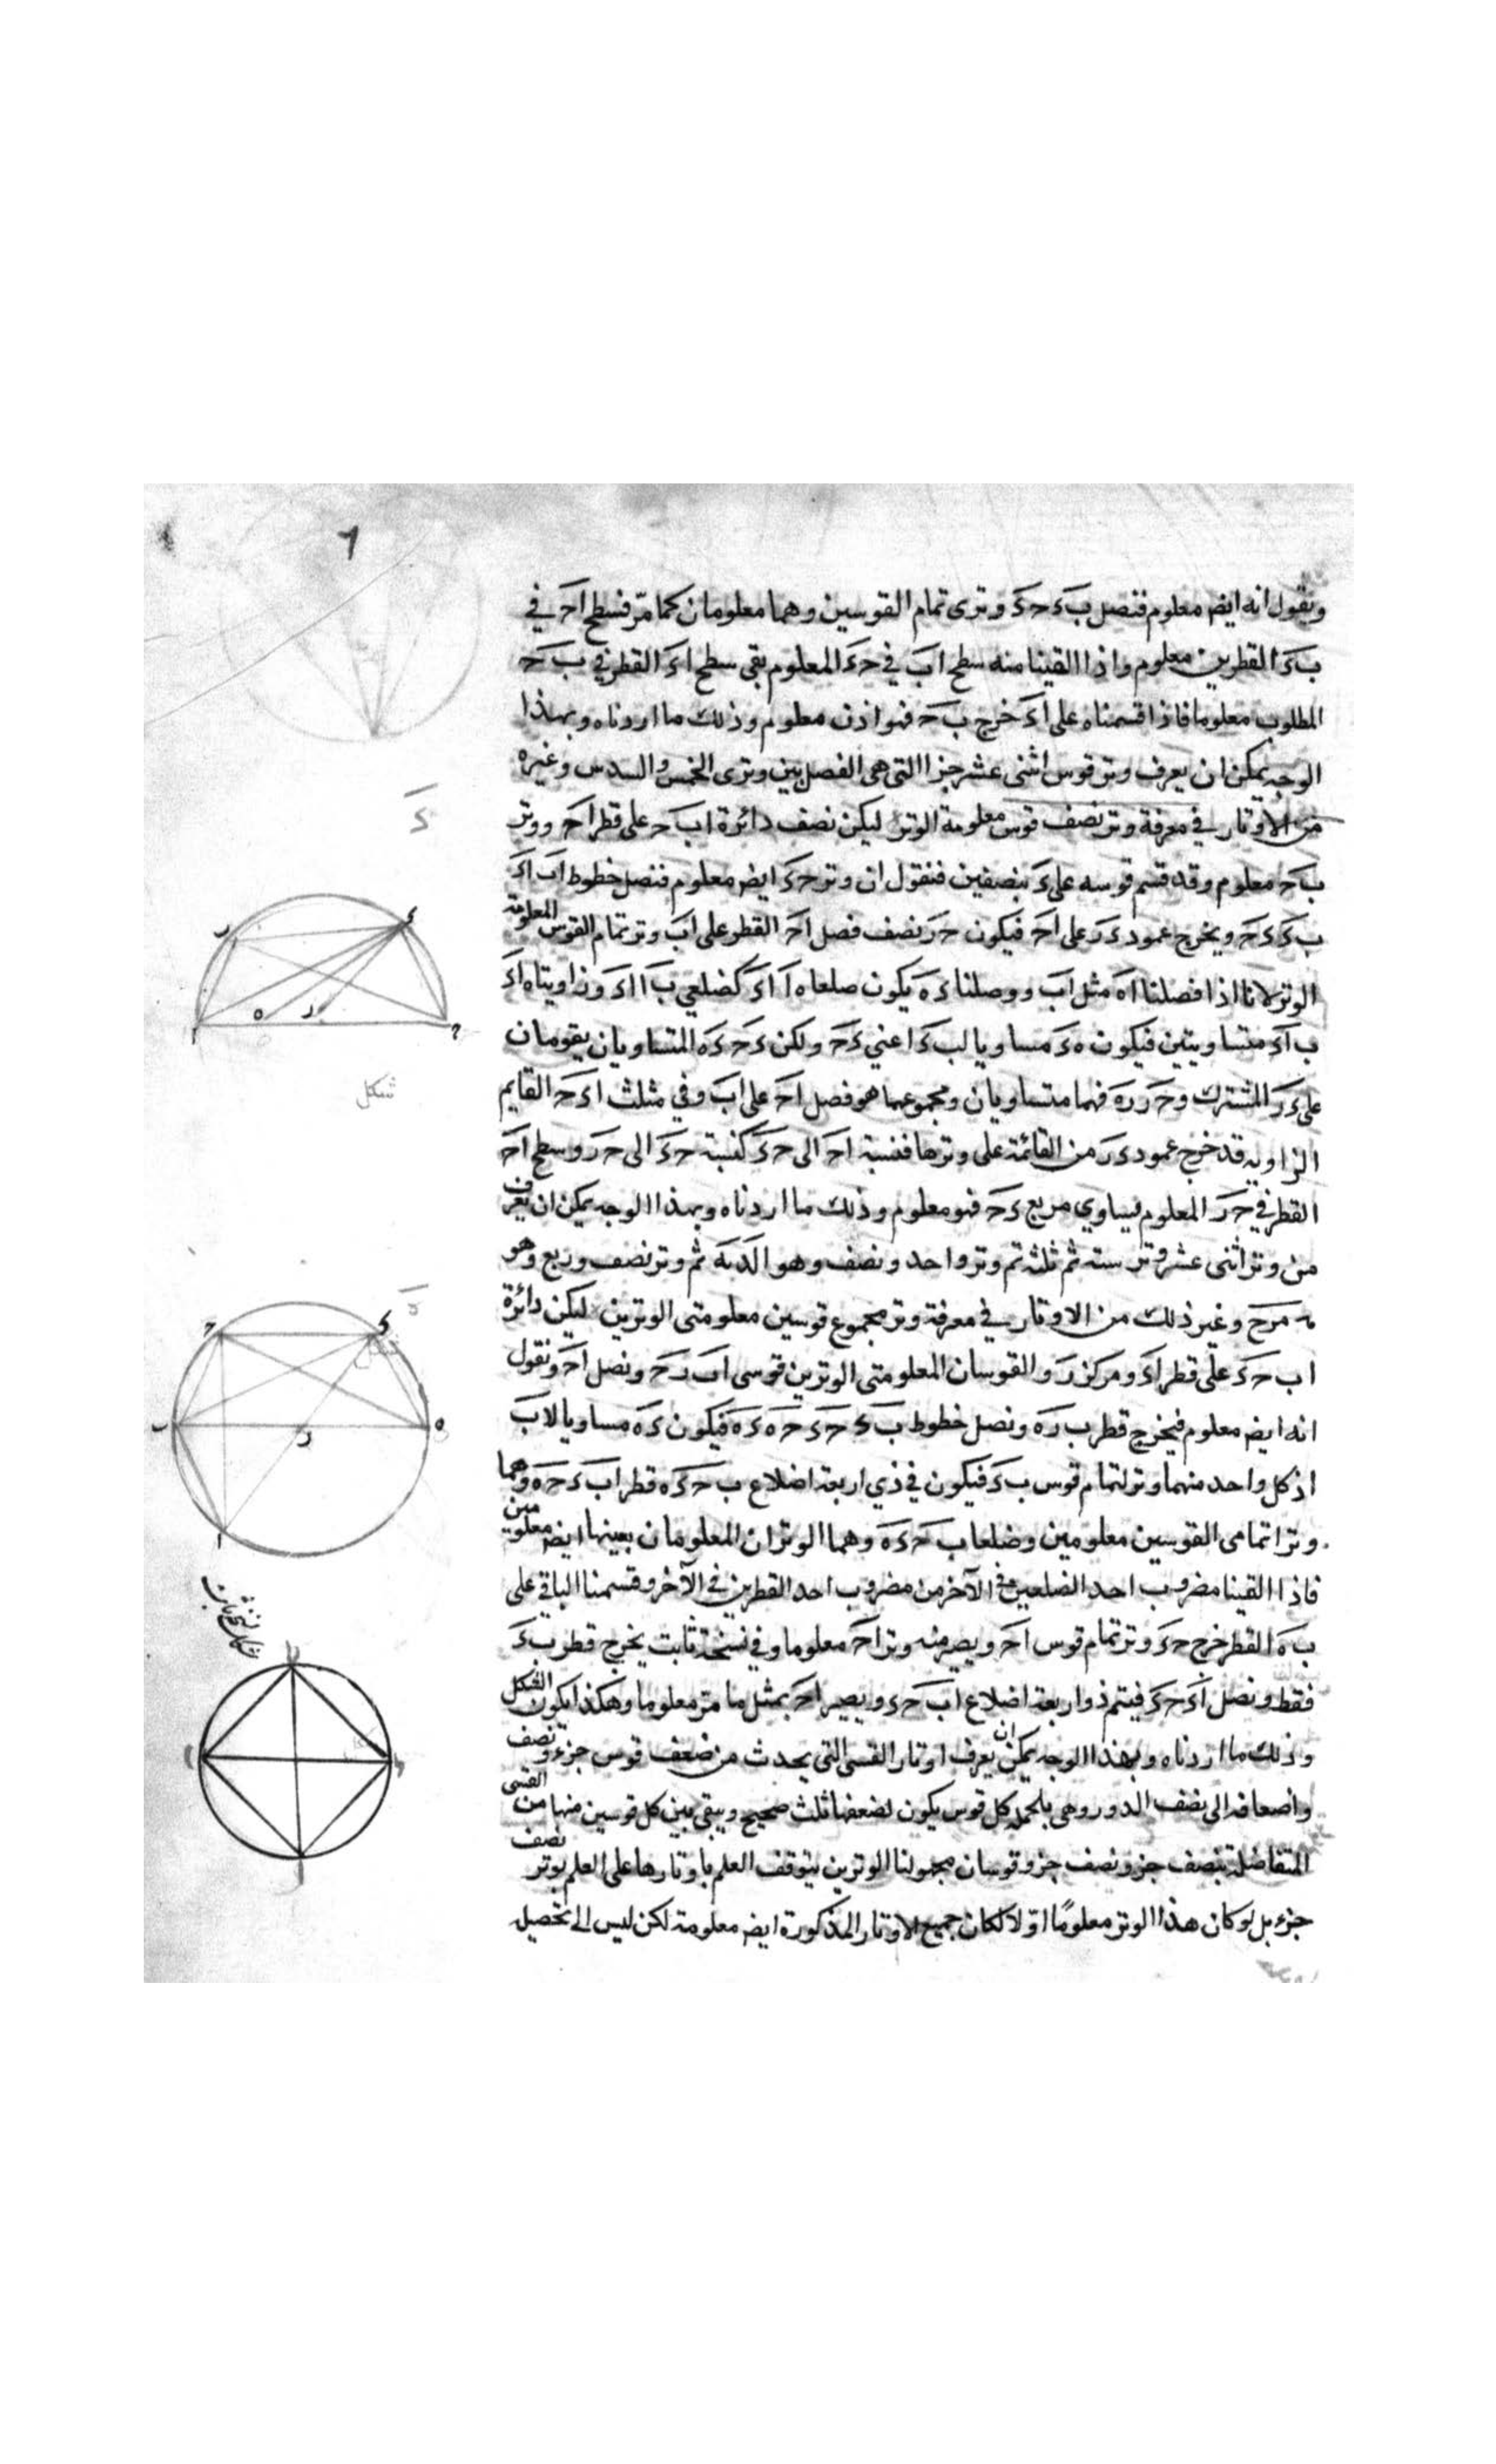 ونقول انه ايضا معلوم فنصل ب د ح د وترى تمام القوسين وهما معلومان كما مر فسطح ا ح في
ب د القطرين معلوم واذا القينا منه سطح ا ب في ح د المعلوم بقي سطح ا د القطر في ب ح
المطلوب معلوما فاذا قسمناه على ا د خرج ب ح فهو اذن معلوم وذلك ما اردناه وبهذا
الوجه يمكن ان يعرف وتر قوس اثنى عشر جزا التى هى الفصل بين وترى الخمس والسدس وغيره
من الاوتار في معرفة وتر نصف قوس معلومة الوتر ليكن نصف دائرة ا ب ح على قطر ا ح ووتر
ب ح معلوم وقد قسم قوسه على د بنصفين فنقول ان وتر ح د ايضا معلوم فنصل خطوط ا ب ا د
ب د د ح ويخرج عمود د ر على ا ح فيكون ح ر نصف فصل ا ح القطر على ا ب وتر تمام القوس المعلومة
الوتر لانا اذا فصلنا ا ه مثل ا ب ووصلنا د ه يكون ضلعا ه ا ا د كضلعي ب ا ا د وزاويتا ه ا د
ب ا د متساويتين فيكون ه د مساويا لب د اعني د ح ولكن د ح د ه المتساويان يقومان
على د ر المشترك و ح ر ر ه فهما متساويان ومجموعهما هو فصل ا ح على ا ب وفي مثلث ا د ح القايم
الزاويه قد خرج عمود د ر من القائمة على وترها فنسبة ا ح الى ح د كنسبة ح د الى ح ر وسطح ا ح
القطر في ح ر المعلوم يساوي مربع د ح فهو معلوم وذلك ما اردناه وبهذا الوجه يمكن ان يعرف
من وتر اثنى عشر وتر سته ثم ثلثه ثم وتر واحد ونصف وهو ا لد يه ثم وتر نصف وربع وهو
ه مر ح وغير ذلك من الاوتار في معرفة وتر مجموع قوسين معلومتى الوترين ليكن دائرة
ا ب ح د على قطر ا د ومركز ر والقوسان المعلومتى الوترين قوسى ا ب ب ح ونصل ا ح ونقول
انه ايضا معلوم فيخرج قطر ب ر ه ونصل خطوط ب د ح د ح ه د ه فيكون د ه مساويا لا ب
اذ كل واحد منهما وتر لتمام قوس ب د فيكون في ذي اربعة اضلاع ب ح د ه قطرا ب د ح ه وهما
وترا تمامى القوسين معلومين وضلعا ب ح د ه وهما الوتران المعلومان بعينها ايضا معلومين
فاذا القينا مضروب احد الضلعين في الآخر من مضروب احد القطرين في الآخر وقسمنا الباقي على
ب ه القطر خرج ح د وتر تمام قوس ا ح ويصير منه وتر ا ح معلوما وفي نسخة ثابت يخرج قطر ب د
فقط ونصل ا د ح د فيتم ذو اربعة اضلاع ا ب ح د ويصير ا ح بمثل ما مر معلوما وهكذا يكون الشكل
وذلك ما اردناه وبهذا الوجه يمكن ان يعرف اوتار القسى التى يحدث من ضعف قوس جزء ونصف
واضعافه الى نصف الدور وهى بالجمله كل قوس يكون لضعفها ثلث صحيح ويبقى بين كل قوسين منها من القسى
المتفاضلة بنصف جزو نصف جزو قوسان مجهولتا الوترين يتوقف العلم باوتارها على العلم بوتر نصف
جزء بل لو كان هذا الوتر معلوما اولا لكان جميع الاوتار المذكورة ايضا معلومة لكن ليس الى تحصيل
٦
د
ب
د
ا
ه
ر
ح
شكل
ه
ح
د
شكل
ب
ر
ه
ا
ا
ب
د